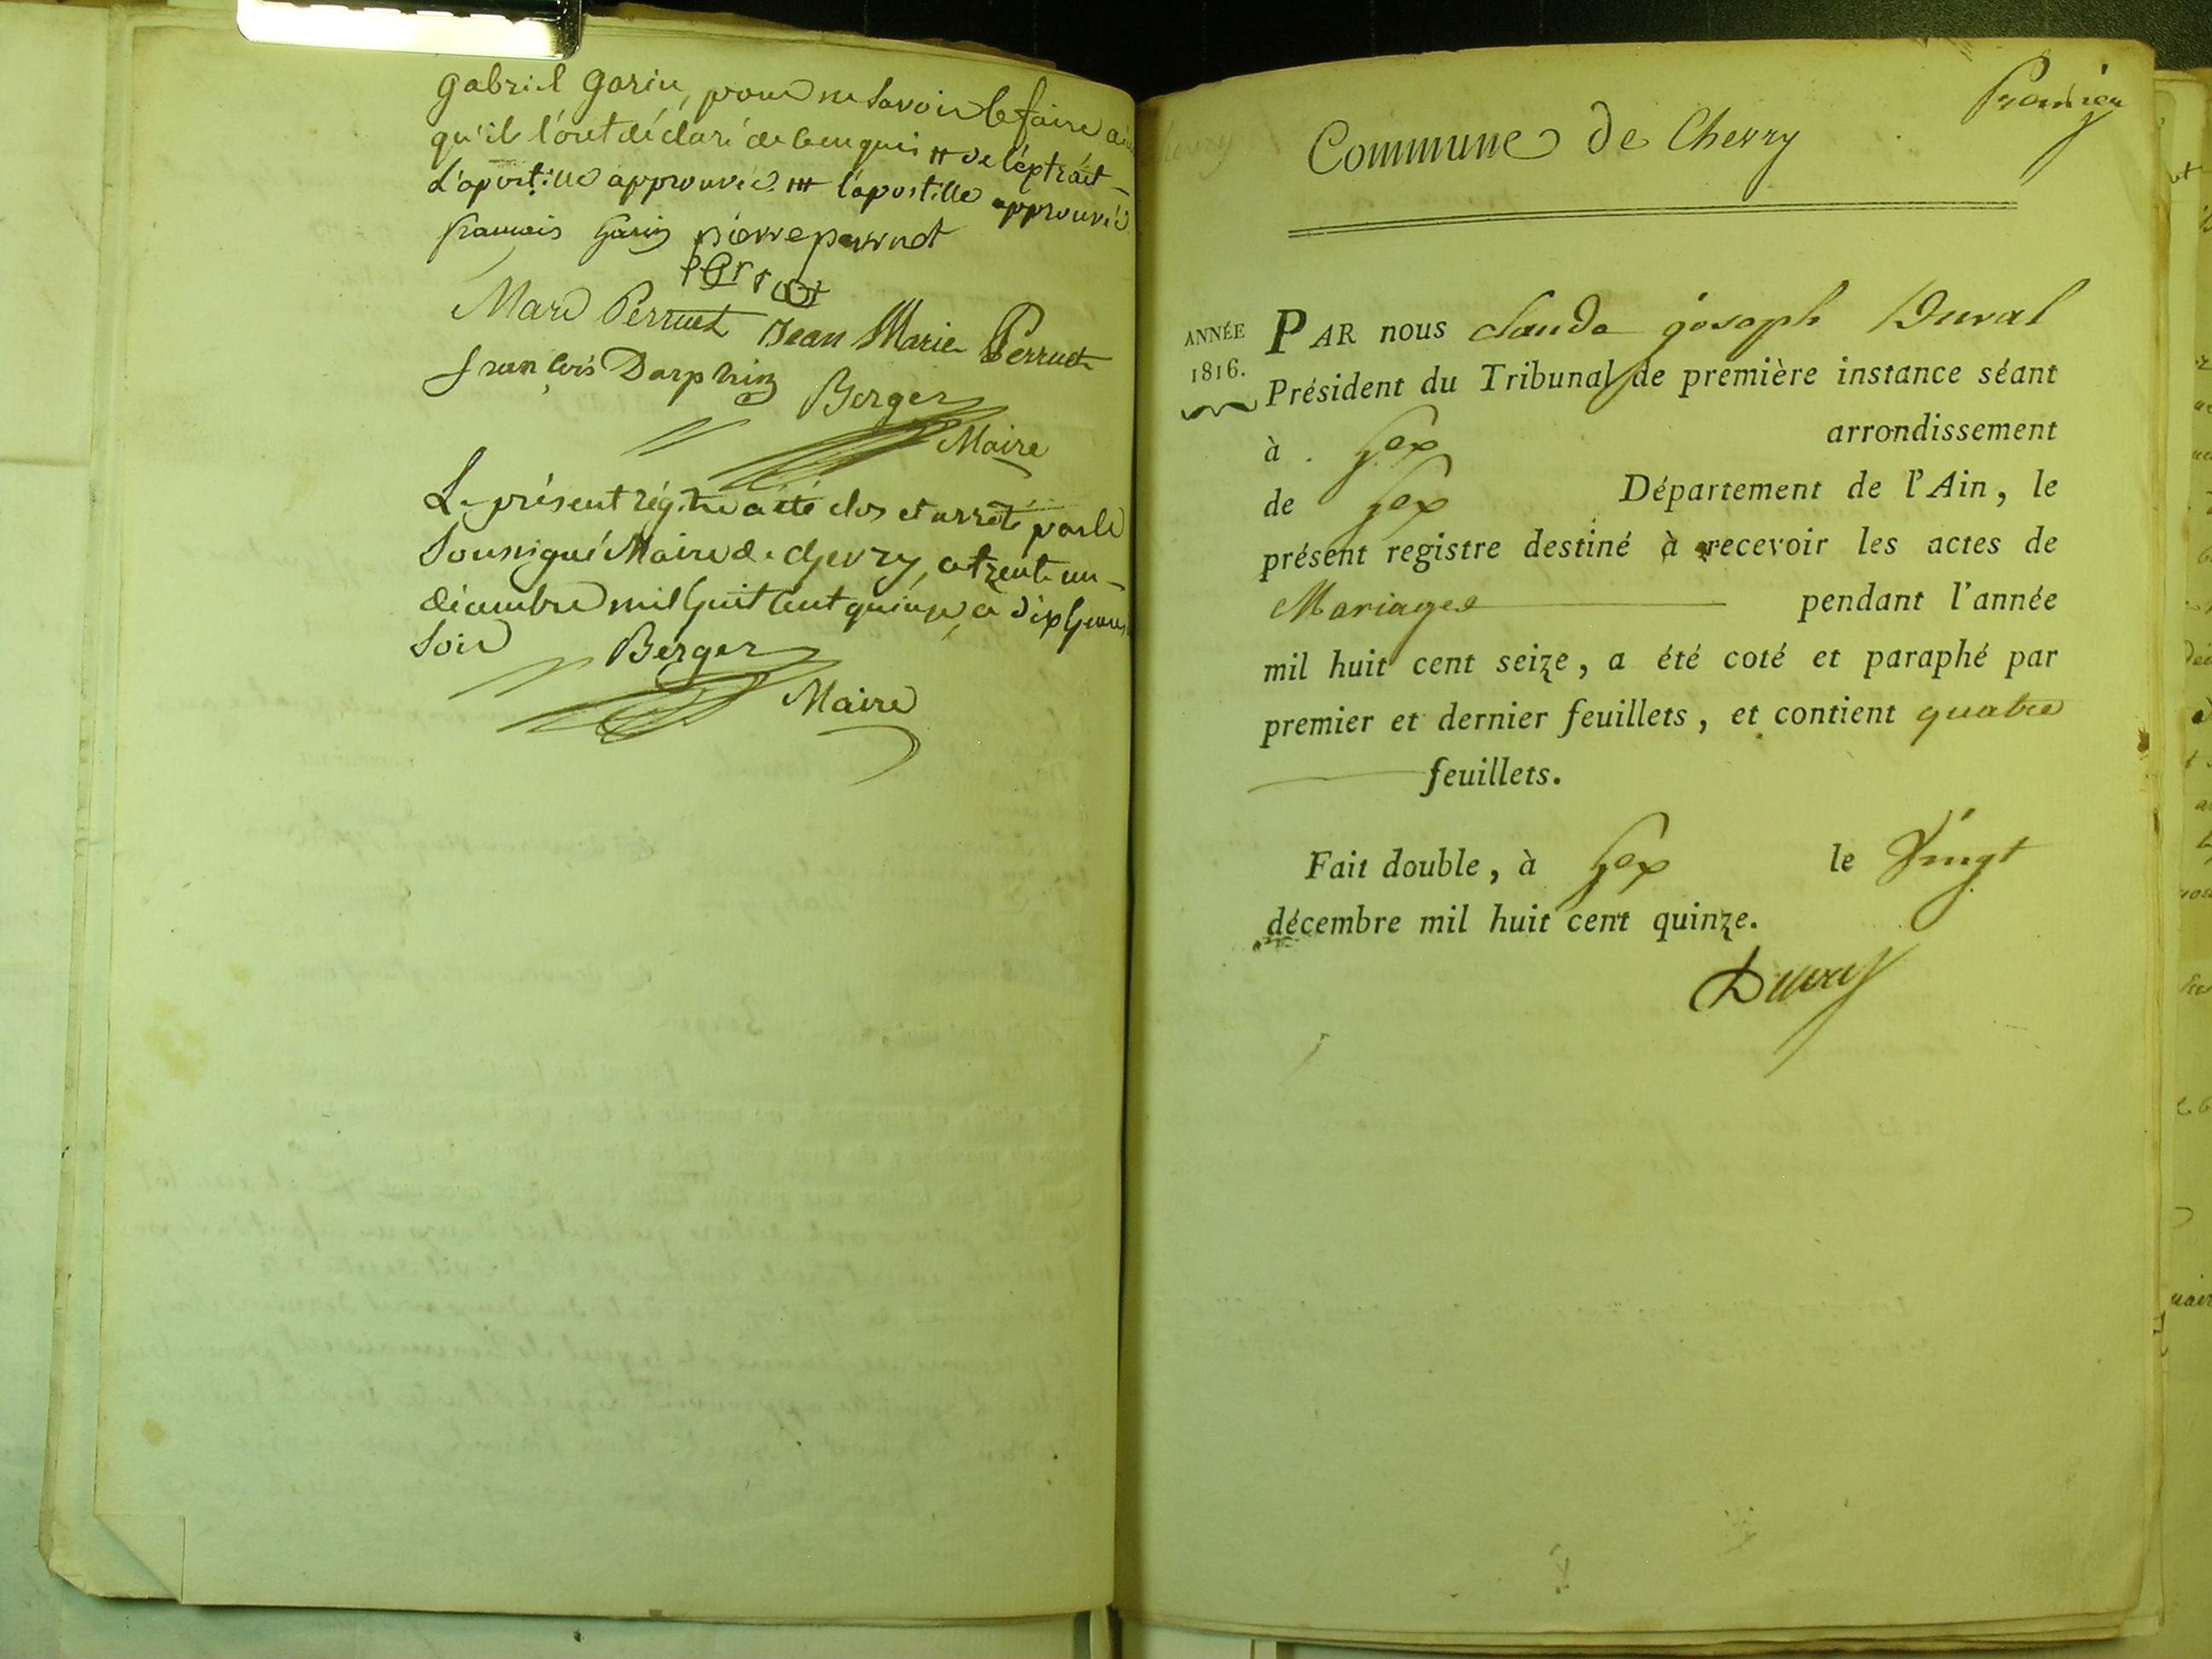 gabriel garin, pour ne savoir le faire
qu'ils l'ont déclaré de ce enquis # de l'extrait
L'apostille approuvée. ## l'apostille approuvée
francois garin pierre perruet
Marc Perruet Jean Marie Perruet
francois Darphin
Berger
Maire
Le présent régitre a été clos et arreté par le
Soussigné Maire de chevry, ce trente un
décembre mil huit cent quinze, à dix heures
Soir Berger
Maire
Premier
Commune de Chevry
ANNÉE
1816.
PAR nous Claude joseph Duval
Président du Tribunal de première instance séant
à Gex arrondissement
de Gex Département de l'Ain, le
présent registre destiné à recevoir les actes de
Mariages pendant l'année
mil huit cent seize, a été coté et paraphé par
premier et dernier feuillets, et contient quatre
feuillets.
Fait double, à Gex le Vingt
décembre mil huit cent quinze.
Duval